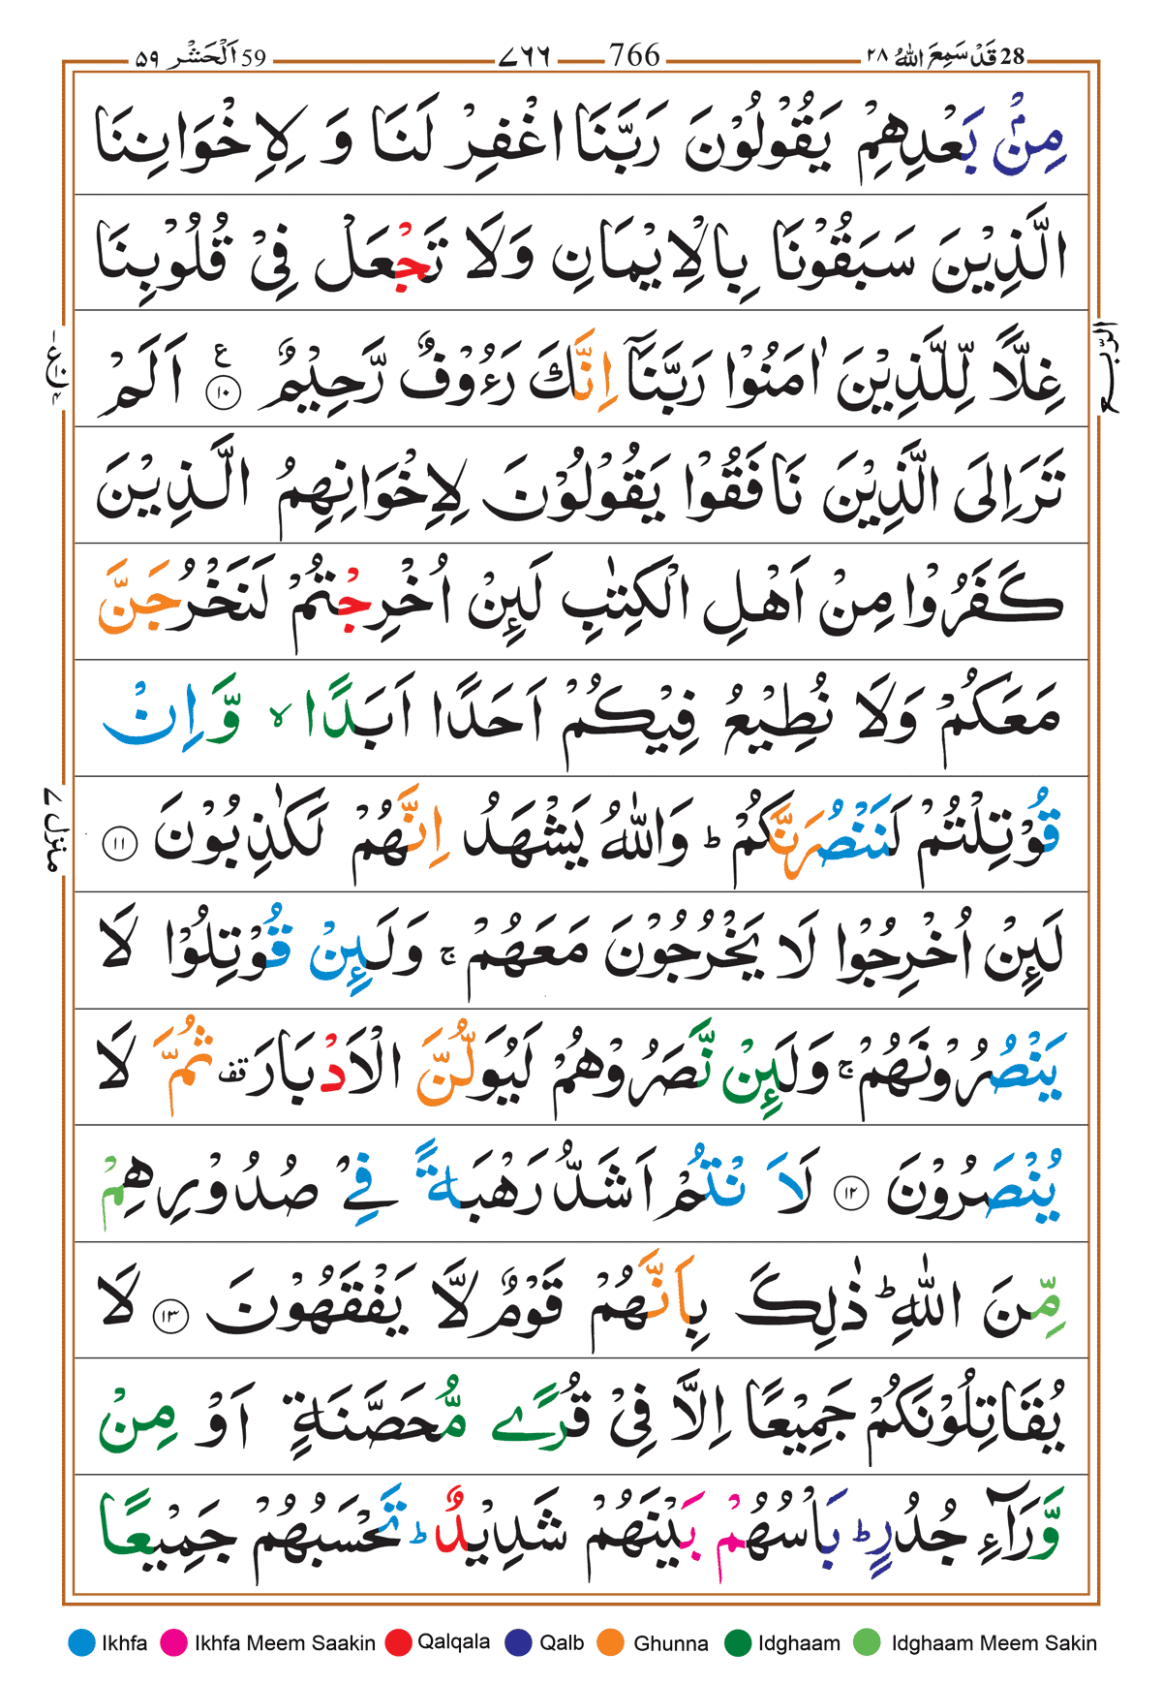 28 قَدْ سَمِعَ اللّٰهُ ٢٨ 766 ٧٦٦ 59 اَلْحَشْر ٥٩
مِنْۢ بَعْدِهِمْ يَقُوْلُوْنَ رَبَّنَا اغْفِرْ لَنَا وَ لِاِخْوَانِنَا
الَّذِيْنَ سَبَقُوْنَا بِالْاِيْمَانِ وَلَا تَجْعَلْ فِيْ قُلُوْبِنَا
غِلًّا لِّلَّذِيْنَ اٰمَنُوْا رَبَّنَاۤ اِنَّكَ رَءُوْفٌ رَّحِيْمٌ ۧ ﴿١٠﴾ اَلَمْ
تَرَ اِلَى الَّذِيْنَ نَافَقُوْا يَقُوْلُوْنَ لِاِخْوَانِهِمُ الَّذِيْنَ
كَفَرُوْا مِنْ اَهْلِ الْكِتٰبِ لَئِنْ اُخْرِجْتُمْ لَنَخْرُجَنَّ
مَعَكُمْ وَلَا نُطِيْعُ فِيْكُمْ اَحَدًا اَبَدًا ۙ وَّاِنْ
قُوْتِلْتُمْ لَنَنْصُرَنَّكُمْ ؕ وَاللّٰهُ يَشْهَدُ اِنَّهُمْ لَكٰذِبُوْنَ ﴿١١﴾
لَئِنْ اُخْرِجُوْا لَا يَخْرُجُوْنَ مَعَهُمْ ۚ وَلَئِنْ قُوْتِلُوْا لَا
يَنْصُرُوْنَهُمْ ۚ وَلَئِنْ نَّصَرُوْهُمْ لَيُوَلُّنَّ الْاَدْبَارَ قف ثُمَّ لَا
يُنْصَرُوْنَ ﴿١٢﴾ لَاَنْتُمْ اَشَدُّ رَهْبَةً فِيْ صُدُوْرِهِمْ
مِّنَ اللّٰهِ ؕ ذٰلِكَ بِاَنَّهُمْ قَوْمٌ لَّا يَفْقَهُوْنَ ﴿١٣﴾ لَا
يُقَاتِلُوْنَكُمْ جَمِيْعًا اِلَّا فِيْ قُرًى مُّحَصَّنَةٍ اَوْ مِنْ
وَّرَآءِ جُدُرٍ ؕ بَاْسُهُمْ بَيْنَهُمْ شَدِيْدٌ ؕ تَحْسَبُهُمْ جَمِيْعًا
الربع
منزل ٧
Ikhfa Ikhfa Meem Saakin Qalqala Qalb Ghunna Idghaam Idghaam Meem Sakin